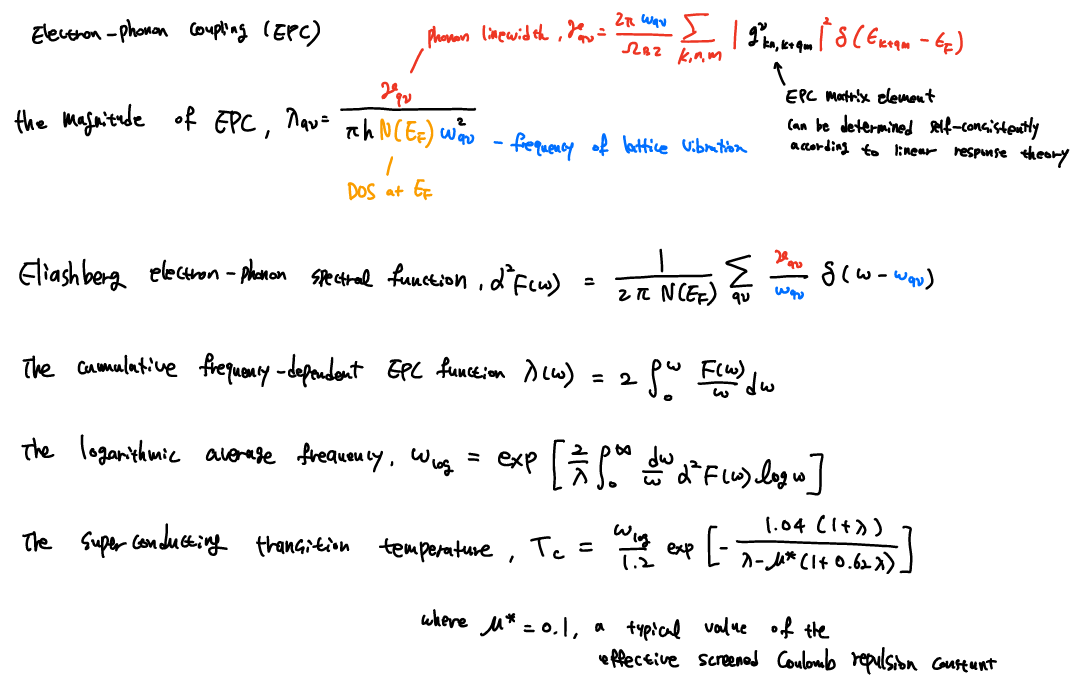 Electron-phonon coupling (EPC)
phonon linewidth, γ_qν = 2π ω_qν / Ω_BZ ∑_k,n,m | g^ν_kn,k+qm |² δ(ϵ_k+qm − ϵ_F)
EPC matrix element
can be determined self-consistently
according to linear response theory
γ_qν
the magnitude of EPC, λ_qν = γ_qν / πh N(E_F) ω²_qν - frequency of lattice vibration
DOS at E_F
Eliashberg electron-phonon spectral function, α²F(ω) = 1 / 2π N(E_F) ∑_qν γ_qν / ω_qν δ(ω − ω_qν)
The cumulative frequency-dependent EPC function λ(ω) = 2 ∫_0^ω F(ω)/ω dω
The logarithmic average frequency, ω_log = exp [ 2/λ ∫_0^∞ dω/ω α²F(ω) log ω ]
The superconducting transition temperature, T_c = ω_log / 1.2 exp [ − 1.04 (1+λ) / λ − μ* (1+0.62λ) ]
where μ* = 0.1, a typical value of the
effective screened Coulomb repulsion constant